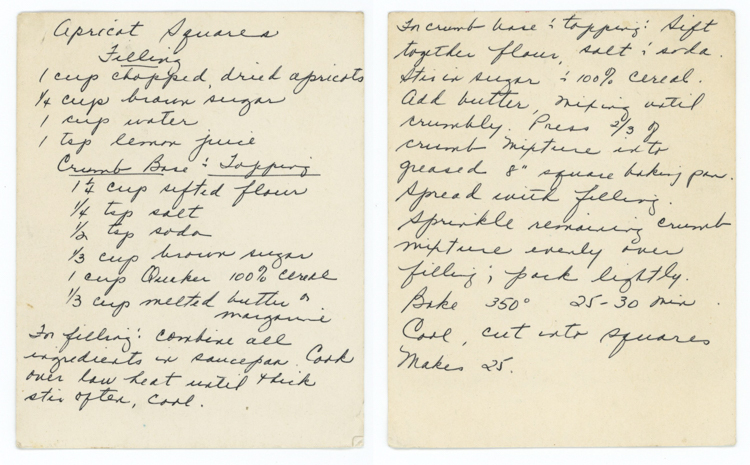 Apricot Squares
Filling
1 cup chopped, dried apricots
1/4 cup brown sugar
1 cup water
1 tsp lemon juice
Crumb Base & Topping
1 1/4 cup sifted flour
1/4 tsp salt
1/2 tsp soda
1/3 cup brown sugar
1 cup Quaker 100% cereal
1/3 cup melted butter or
margarine
For filling: combine all
ingredients in saucepan. Cook
over low heat until thick
stir often, cool.
For crumb base & topping: Sift
together flour, salt & soda.
Stir in sugar & 100% cereal.
Add butter, mixing until
crumbly. Press 2/3 of
crumb mixture into
greased 8" square baking pan.
Spread with filling.
Sprinkle remaining crumb
mixture evenly over
filling; pack lightly.
Bake 350° 25-30 min.
Cool, cut into squares
Makes 25.